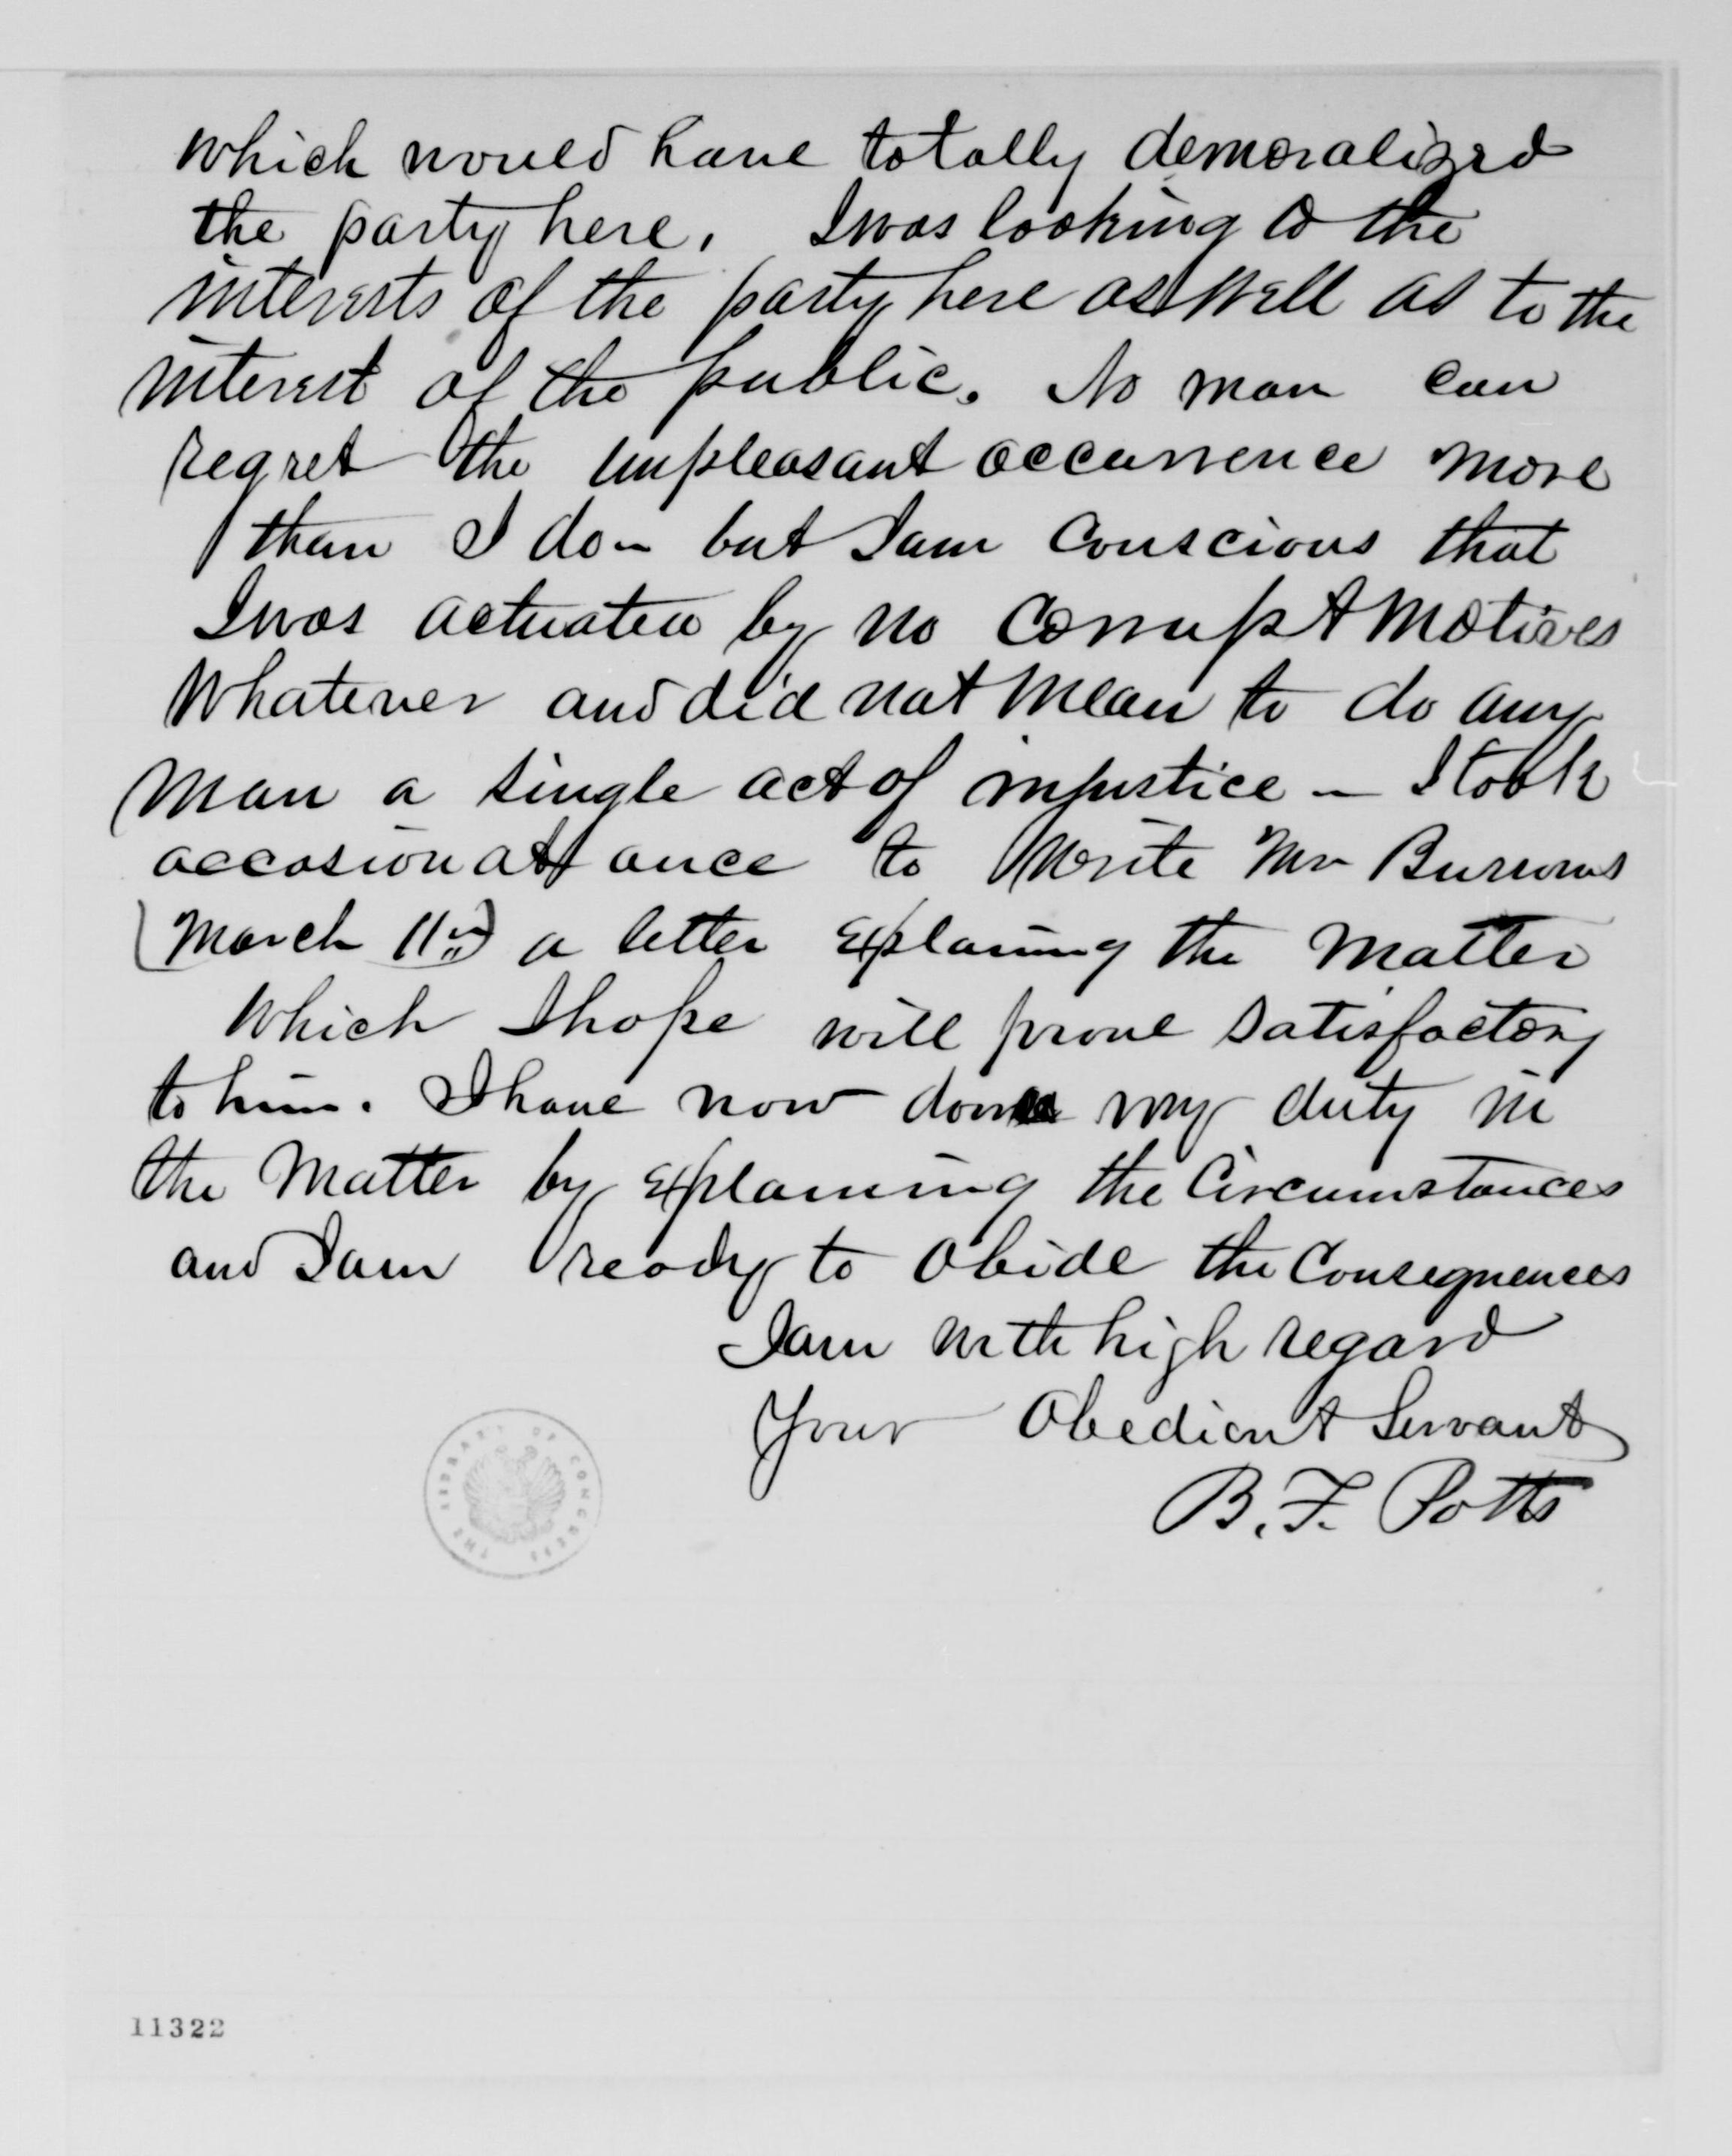 which would have totally demoralized
the party here. I was looking to the
interests of the party here as well as to the
interest of the public. No man can
regret the unpleasant occurrence more
than I do – but I am conscious that
I was actuated by no corrupt motives
whatever and did not mean to do any
man a single act of injustice – I took
occasion at once to write Mr Burrows
(March 11th) a letter explaining the matter
which I hope will prove satisfactory
to him. I have now done my duty in
the matter by explaining the circumstances
and I am ready to abide the consequences
I am with high regard
Your Obedient Servant
B. F. Potts
THE LIBRARY OF CONGRESS
11322